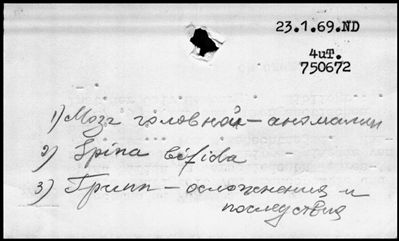 23.1.69.ND
4uT.
750672
1) Мозг головной - аномалии
2) Spina bifida
3) Грипп - осложнения и
последствия